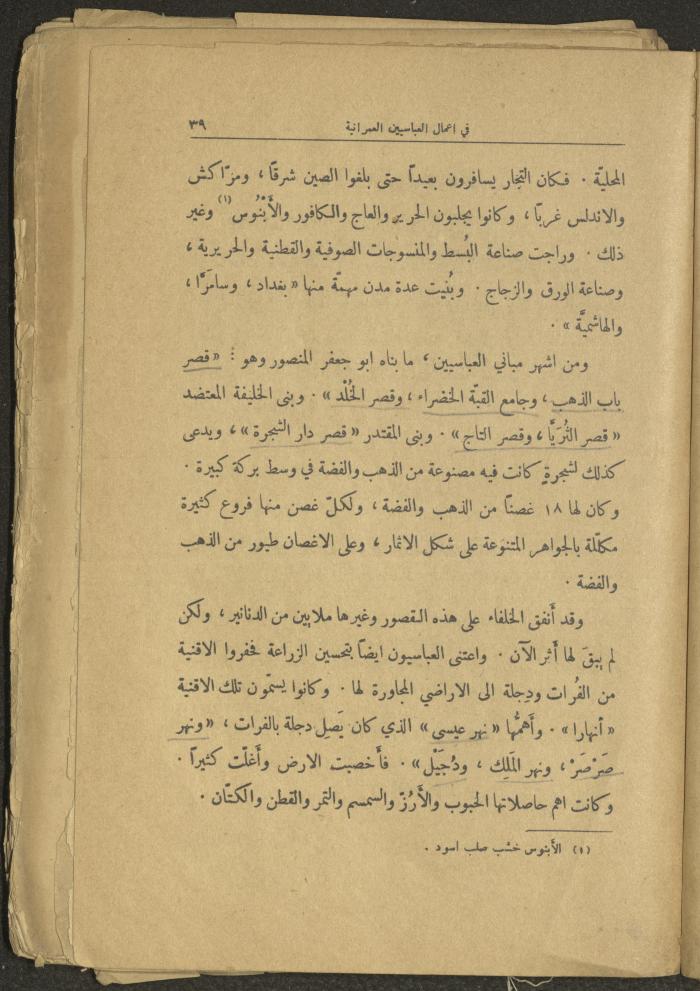 في اعمال العباسيين العمرانية ٣٩
المحليّة . فكان التجار يسافرون بعيداً حتى بلغوا الصين شرقًا ، ومرّاكش
والاندلس غربًا ، وكانوا يجلبون الحرير والعاج والكافور والأَبْنُوس (١) وغير
ذلك . وراجت صناعة البُسط والمنسوجات الصوفية والقطنية والحريرية ،
وصناعة الورق والزجاج . وبُنيت عدة مدن مهمّة منها « بغداد ، وسامَرَّا ،
والهاشميَّة » .
ومن اشهر مباني العباسيين ، ما بناه ابو جعفر المنصور وهو : « قصر
باب الذهب ، وجامع القبّة الخضراء ، وقصر الخُلْد » . وبنى الخليفة المعتضد
« قصر الثُرَيَّا ، وقصر التاج » . وبنى المقتدر « قصر دار الشجرة » ، ويدعى
كذلك لشجرةٍ كانت فيه مصنوعة من الذهب والفضة في وسط بركة كبيرة .
وكان لها ١٨ غصنًا من الذهب والفضة ، ولكلّ غصن منها فروع كثيرة
مكلّلة بالجواهر المتنوعة على شكل الاثمار ، وعلى الاغصان طيور من الذهب
والفضة .
وقد أَنفق الخلفاء على هذه القصور وغيرها ملايين من الدنانير ، ولكن
لم يبقَ لها أَثر الآن . واعتنى العباسيون ايضًا بتحسين الزراعة فحفروا الاقنية
من الفُرات ودِجلة الى الاراضي المجاورة لها . وكانوا يسمّون تلك الاقنية
« أنهارا » . وأَهمُّها « نهر عيسى » الذي كان يَصِل دجلة بالفرات ، « ونهر
صَرْصَرْ ، ونهر المَلِك ، ودُجَيْل » . فأَخصبت الارض وأَغلّت كثيراً .
وكانت اهم حاصلاتها الحبوب والأَرُزّ والسمسم والتمر والقطن والكتّان .
(١) الأَبنوس خشب صلب اسود .